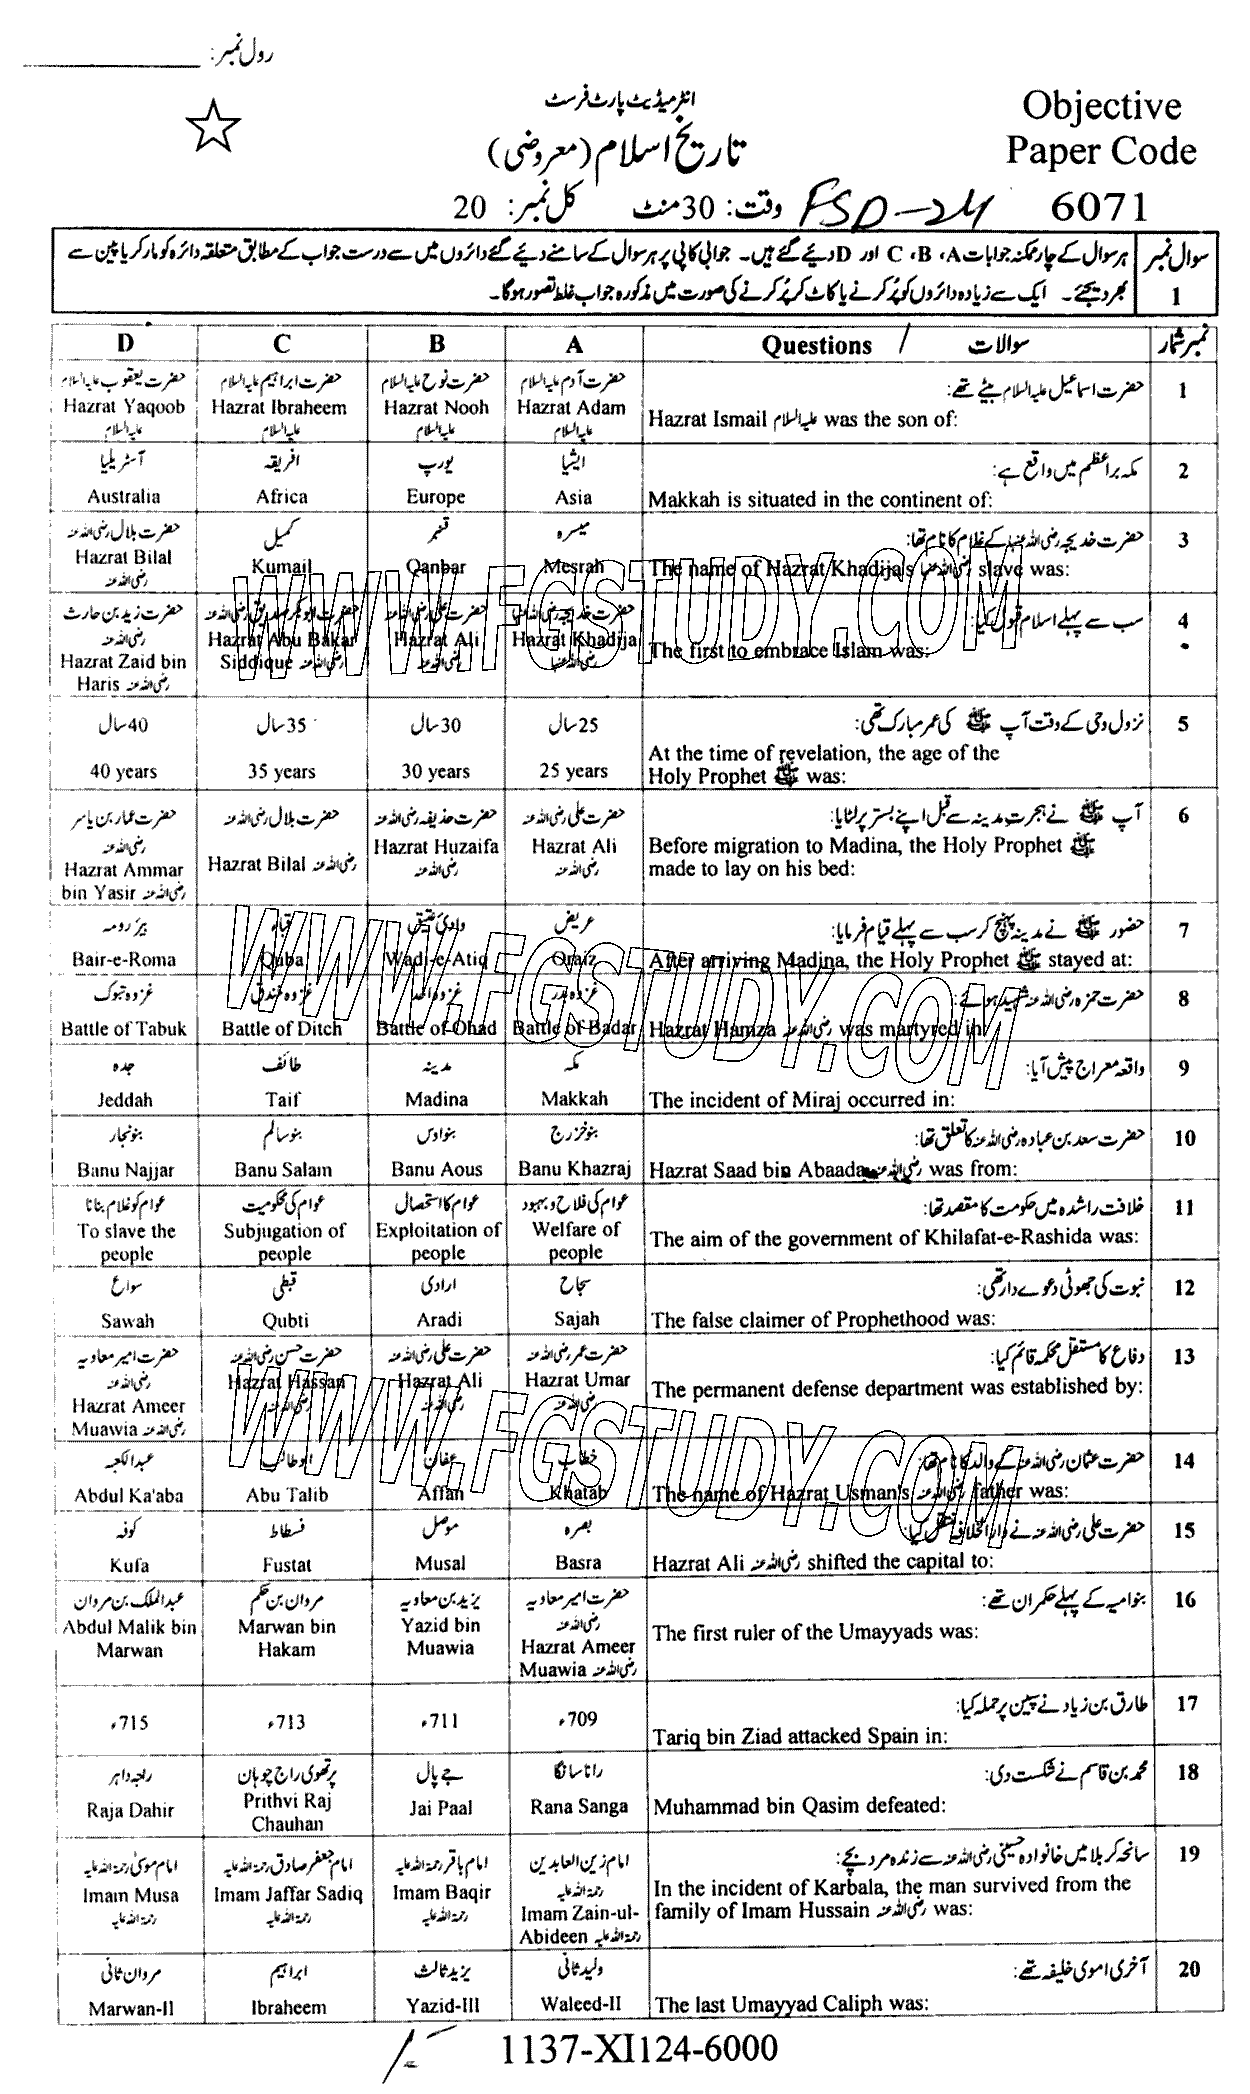 رول نمبر: ____________
انٹرمیڈیٹ پارٹ فرسٹ
Objective
تاریخ اسلام (معروضی)
Paper Code
وقت: 30 منٹ کل نمبر: 20
FSD-24
6071
سوال نمبر 1
ہر سوال کے چار ممکنہ جوابات A، B، C اور D دیئے گئے ہیں۔ جوابی کاپی پر ہر سوال کے سامنے دیئے گئے دائروں میں سے درست جواب کے مطابق متعلقہ دائرہ کو مارکر یا پین سے
بھر دیجئے۔ ایک سے زیادہ دائروں کو پُر کرنے یا کاٹ کر پُر کرنے کی صورت میں مذکورہ جواب غلط تصور ہوگا۔
نمبر شمار سوالات / Questions A B C D
1 حضرت اسماعیل علیہ السلام بیٹے تھے:
Hazrat Ismail علیہ السلام was the son of:
حضرت آدم علیہ السلام Hazrat Adam علیہ السلام
حضرت نوح علیہ السلام Hazrat Nooh علیہ السلام
حضرت ابراہیم علیہ السلام Hazrat Ibraheem علیہ السلام
حضرت یعقوب علیہ السلام Hazrat Yaqoob علیہ السلام
2 مکہ براعظم میں واقع ہے:
Makkah is situated in the continent of:
ایشیا Asia
یورپ Europe
افریقہ Africa
آسٹریلیا Australia
3 حضرت خدیجہ رضی اللہ عنہا کے غلام کا نام تھا:
The name of Hazrat Khadija's رضی اللہ عنہا slave was:
میسرہ Mesrah
قنبر Qanbar
کمیل Kumail
حضرت بلال رضی اللہ عنہ Hazrat Bilal رضی اللہ عنہ
4 سب سے پہلے اسلام قبول کیا:
The first to embrace Islam was:
حضرت خدیجہ رضی اللہ عنہا Hazrat Khadija رضی اللہ عنہا
حضرت علی رضی اللہ عنہ Hazrat Ali رضی اللہ عنہ
حضرت ابوبکر صدیق رضی اللہ عنہ Hazrat Abu Bakar Siddique رضی اللہ عنہ
حضرت زید بن حارث رضی اللہ عنہ Hazrat Zaid bin Haris رضی اللہ عنہ
5 نزول وحی کے وقت آپ ﷺ کی عمر مبارک تھی:
At the time of revelation, the age of the
Holy Prophet ﷺ was:
25 سال 25 years
30 سال 30 years
35 سال 35 years
40 سال 40 years
6 آپ ﷺ نے ہجرت مدینہ سے قبل اپنے بستر پر لٹایا:
Before migration to Madina, the Holy Prophet ﷺ
made to lay on his bed:
حضرت علی رضی اللہ عنہ Hazrat Ali رضی اللہ عنہ
حضرت حذیفہ رضی اللہ عنہ Hazrat Huzaifa رضی اللہ عنہ
حضرت بلال رضی اللہ عنہ Hazrat Bilal رضی اللہ عنہ
حضرت عمار بن یاسر رضی اللہ عنہ Hazrat Ammar bin Yasir رضی اللہ عنہ
7 حضور ﷺ نے مدینہ پہنچ کر سب سے پہلے قیام فرمایا:
After arriving Madina, the Holy Prophet ﷺ stayed at:
عریض Oraiz
وادی عتیق Wadi-e-Atiq
قباء Quba
بیئر رومہ Bair-e-Roma
8 حضرت حمزہ رضی اللہ عنہ شہید ہوئے:
Hazrat Hamza رضی اللہ عنہ was martyred in:
غزوہ بدر Battle of Badar
غزوہ احد Battle of Ohad
غزوہ خندق Battle of Ditch
غزوہ تبوک Battle of Tabuk
9 واقعہ معراج پیش آیا:
The incident of Miraj occurred in:
مکہ Makkah
مدینہ Madina
طائف Taif
جدہ Jeddah
10 حضرت سعد بن عبادہ رضی اللہ عنہ کا تعلق تھا:
Hazrat Saad bin Abaada رضی اللہ عنہ was from:
بنو خزرج Banu Khazraj
بنو اوس Banu Aous
بنو سالم Banu Salam
بنو نجار Banu Najjar
11 خلافت راشدہ میں حکومت کا مقصد تھا:
The aim of the government of Khilafat-e-Rashida was:
عوام کی فلاح و بہبود Welfare of people
عوام کا استحصال Exploitation of people
عوام کی محکومیت Subjugation of people
عوام کو غلام بنانا To slave the people
12 نبوت کی جھوٹی دعوے دار تھی:
The false claimer of Prophethood was:
سجاح Sajah
ارادی Aradi
قبطی Qubti
سواع Sawah
13 دفاع کا مستقل محکمہ قائم کیا:
The permanent defense department was established by:
حضرت عمر رضی اللہ عنہ Hazrat Umar رضی اللہ عنہ
حضرت علی رضی اللہ عنہ Hazrat Ali رضی اللہ عنہ
حضرت حسن رضی اللہ عنہ Hazrat Hassan رضی اللہ عنہ
حضرت امیر معاویہ رضی اللہ عنہ Hazrat Ameer Muawia رضی اللہ عنہ
14 حضرت عثمان رضی اللہ عنہ کے والد کا نام تھا:
The name of Hazrat Usman's رضی اللہ عنہ father was:
خطاب Khatab
عفان Affan
ابو طالب Abu Talib
عبدالکعبہ Abdul Ka'aba
15 حضرت علی رضی اللہ عنہ نے دارالخلافہ منتقل کیا:
Hazrat Ali رضی اللہ عنہ shifted the capital to:
بصرہ Basra
موصل Musal
فسطاط Fustat
کوفہ Kufa
16 بنو امیہ کے پہلے حکمران تھے:
The first ruler of the Umayyads was:
حضرت امیر معاویہ رضی اللہ عنہ Hazrat Ameer Muawia رضی اللہ عنہ
یزید بن معاویہ Yazid bin Muawia
مروان بن حکم Marwan bin Hakam
عبدالملک بن مروان Abdul Malik bin Marwan
17 طارق بن زیاد نے سپین پر حملہ کیا:
Tariq bin Ziad attacked Spain in:
709ء
711ء
713ء
715ء
18 محمد بن قاسم نے شکست دی:
Muhammad bin Qasim defeated:
رانا سانگا Rana Sanga
جے پال Jai Paal
پرتھوی راج چوہان Prithvi Raj Chauhan
راجہ داہر Raja Dahir
19 سانحہ کربلا میں خانوادہ حسینی رضی اللہ عنہ سے زندہ مرد بچے:
In the incident of Karbala, the man survived from the
family of Imam Hussain رضی اللہ عنہ was:
امام زین العابدین رحمۃ اللہ علیہ Imam Zain-ul-Abideen رحمۃ اللہ علیہ
امام باقر رحمۃ اللہ علیہ Imam Baqir رحمۃ اللہ علیہ
امام جعفر صادق رحمۃ اللہ علیہ Imam Jaffar Sadiq رحمۃ اللہ علیہ
امام موسیٰ رحمۃ اللہ علیہ Imam Musa رحمۃ اللہ علیہ
20 آخری اموی خلیفہ تھے:
The last Umayyad Caliph was:
ولید ثانی Waleed-II
یزید ثالث Yazid-III
ابراہیم Ibraheem
مروان ثانی Marwan-II
1137-XI124-6000
WWW.FGSTUDY.COM
WWW.FGSTUDY.COM
WWW.FGSTUDY.COM